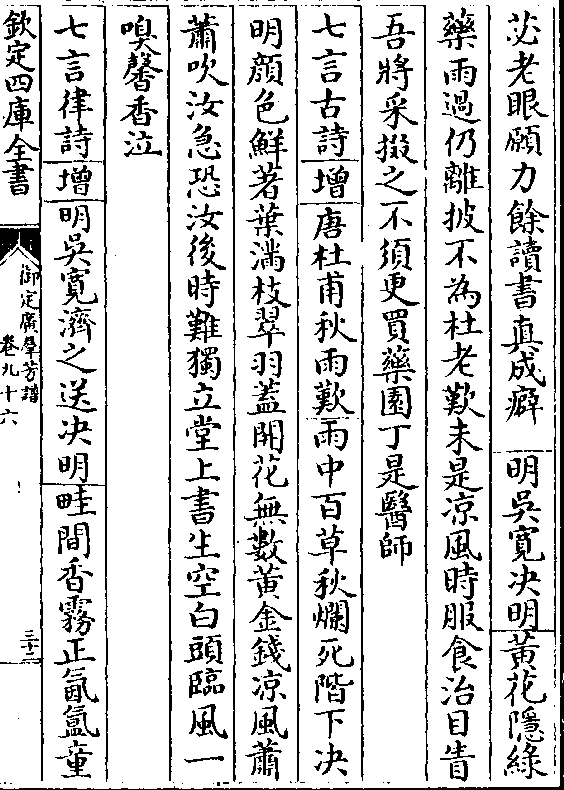 苾老眼願力餘讀書真成癖　明吳寛决明黄花隱緑
藥雨過仍離披不為杜老歎未是凉風時服食治目眚
吾將采掇之不須更買藥園丁是醫師
七言古詩增唐杜甫秋雨歎雨中百草秋爛死階下决
明顔色鮮著葉滿枝翠羽蓋開花無數黄金錢凉風蕭
蕭吹汝急恐汝後時難獨立堂上書生空白頭臨風一
嗅馨香泣
七言律詩增明吳寛濟之送决明畦間香霧正氤氲童
欽定四庫全書
御定廣羣芳譜
卷九十六
三十二